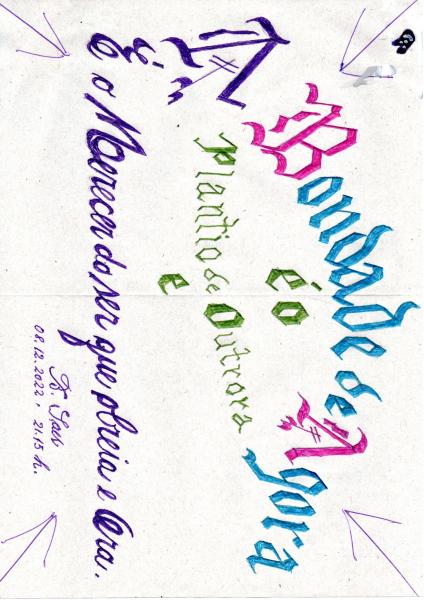 A Bondade de Agora
é o
Plantio de Outrora
e
É o Merecer do, ser que obreia e Ora.
08.12.2022, 21.15 h.